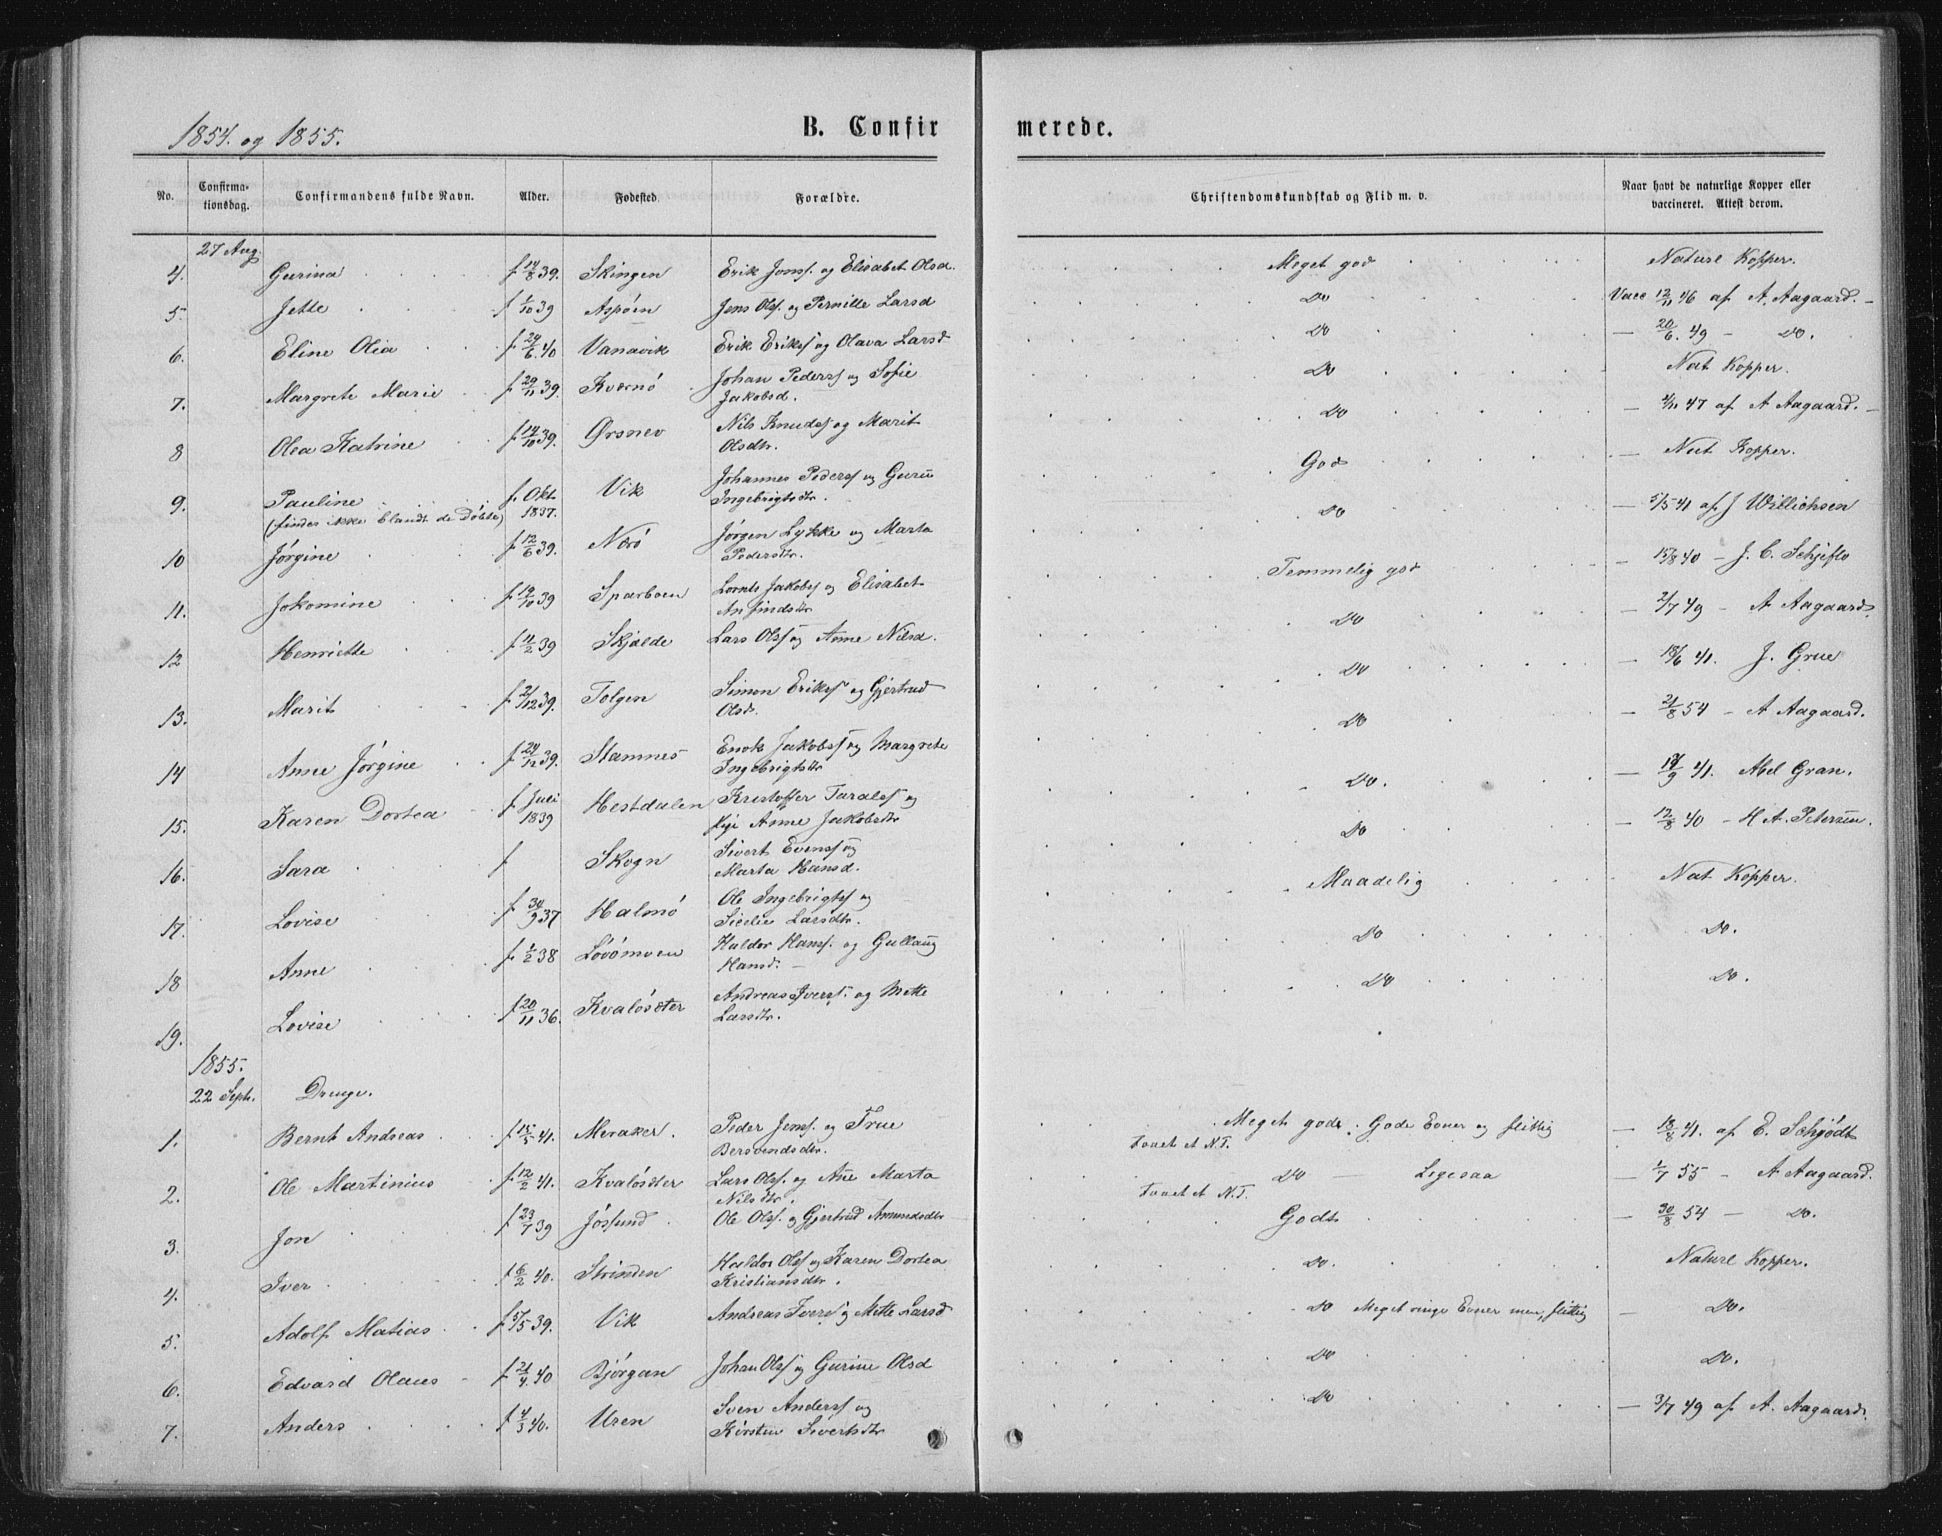 1854. og 1855.
B. Confirmerede.
No. Confirmationsdag. Confirmandens fulde Navn. Alder. Fødested. Forældre. Christendomskundskab og Flid m. v. Naar havt de naturlige Kopper eller vaccineret. Attest derom.
27 Aug.
4. Gurina f 14/8 39. Skingen Erik Jonss. og Elisabet Olsd. Meget god Naturl Kopper.
5. Jette f 1/10 39 Aspøen Jens Olss. og Pernille Larsd Do Vacc 12/11 46 af A. Aagaard. –
6. Eline Olea f 24/6. 40 Vanavik Erik Erikss og Olava Larsd Do – 20/6. 49 – Do.
7. Margrete Marie f 29/11 39. Kværnø Johan Pederss og Sofie Jakobsd. Do Nat Kopper.
8 Olea Katrine f 14/10 39. Ørsnev Nils Knudss og Marit Olsdtr. Do – 4/11 47 af A Aagaard. –
9. Pauline f. Okt. 1837. Vik Johannes Pederss og Guru Ingebrigtsdtr. God Nat Kopper.
(findes ikke blandt de Døbte)
10 Jørgine f 12/6 39. Nærø Jørgen Lykke og Marta Pedersdtr. Do – 5/5 41 af J Willichsen
11. Jokomine f 19/10 39 Sparboen Lornts Jakobss og Elisabet Anfindsdtr Temmelig god – 15/8 40 – J. C. Schjeflo
12 Henriette f 11/2 39 Skjælde Lars Olss og Anne Nilsd. Do – 2/7 49 – A Aagaard.
13. Marit f 21/12 39. Tolgen Simon Erikss og Gjertrud Olsd. Do – 18/6 41. J. Grue
14 Anne Jørgine f 24/12 39. Stamnes Enok Jakobss og Margrete Ingebrigtsdtr Do – 21/8 54 – A Aagaard.
15. Karen Dortea f Juli 1839 Hestdalen Kristoffer Taralds og Pige Anne Jakobsdtr Do. – 18/9 41. Abel Gran.
16. Sara f Skogn Sivert Evenss og Marta Hansd. Do – 12/8 40 – H A. Petersen.
17. Lovise f 30/9 37 Halmø Ole Ingebrigtss og Sicelie Larsdtr. Maadelig Nat Kopper.
18 Anne f. 1/2 38 Løvømoen Haldor Hanss. og Gullaug Hansd. – Do Do.
19. Lovise f 20/11 36. Kvaløsæter Andreas Iverss. og Mette Larsdtr. Do Do.
1855.
22 Septr. Drenge.
1. Bernt Andreas f 15/5 41. Meraker. Peder Jenss. og True Bersvendsdtr. Meget godt. Gode Evner og flittig – 18/8 41. af E. Schjødt
2. Ole Martinius f 12/2 41. Kvaløsæter Lars Olss. og Ane Marta Nilsdtr. Do – Ligesaa – 1/7 55 – A Aagaard.
3. Jon f 23/7 39 Jøssund Ole Olss. og Gjertrud Amundsdtr Godt – 30/8 54 – Do.
4. Iver f 6/2 40. Strinden Haldor Olss og Karen Dortea Kristiansdtr. Do. Naturl Kopper.
5. Adolf Matias f 5/5 39. Vik Andreas Iverss og Mette Larsd Do Meget ringe Evner men flittig – Do.
6. Edvard Olaus f 21/4. 40 Bjørgan Johan Olss og Gurine Olsd Do Do.
7. Anders f 4/3 40. Uren Sven Anderss og Kirsten Sivertsdtr Do – 3/7 49 af A. Aagaard.